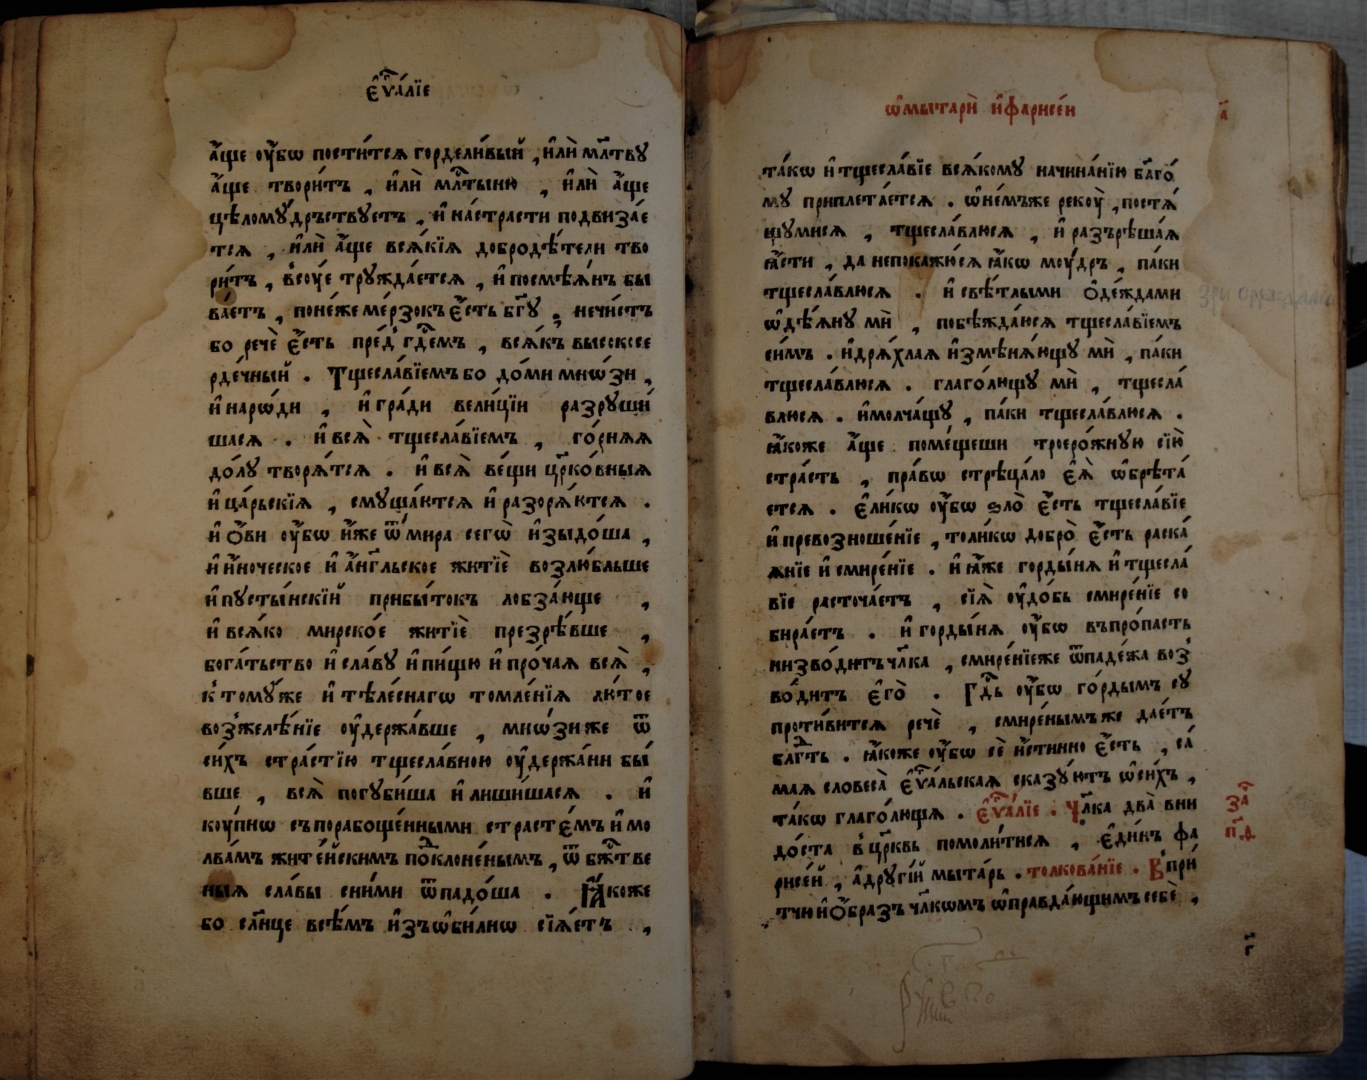 є҆ѵⷢ҇а́лїе
а҆́ще ᲂу҆́бѡ пости́тсѧ горделⷤи́вый , и҆лѝ млⷭ҇тву
а҆́ще твори́тъ , и҆лѝ млⷭ҇тыню , и҆лѝ а҆́ще
цѣломꙋ́дръствуетъ , и҆ на́страсти подвиза́е
тсѧ , и҆лѝ а҆́ще всѧ́кїѧ добродѣ́тели тво
ри́тъ , в̾сꙋ́е тружда́етсѧ , и҆ посмѣѧ́нъ бы
ва́етъ , поне́же ме́рзокъ є҆́сть бг҃у , нечи́стъ
бо речѐ є҆́сть пре́д̾ гдⷭ҇емъ , всѧ́къ высоксе
рде́чный . Тщесла́вїемъ бо до́ми мнѡ́зи ,
и҆ наро́ди , и҆ гра́ди вели́цїи разрꙋши́
шасѧ . и҆ всѧ̀ тщесла́вїемъ , го́рнѧѧ
до́лу творѧ́тсѧ . и҆ всѧ̀ ве́щи цр҃ко́вныѧ
и҆ ца́рьскїѧ , смуща́ютсѧ и҆ разорѧ́ютсѧ .
и҆ ѻ҆́ви ᲂу҆́бѡ и҆́же ѿ мира сегѡ̀ и҆зыдо́ша ,
и҆ и҆́ноческое и҆ а҆́нг҃льское житїѐ возлю́бльше
и҆ пꙋсты́нскїй прибы́токъ лобза́юще ,
и҆ всѧ́ко мирско́е житїѐ презрѣ́вше ,
бога́тьство и҆ сла́ву и҆ пи́щю и҆ про́чаѧ всѧ̀ ,
к̾ томꙋ́же и҆ тѣле́снагѡ томле́нїѧ лю́тое
воз̾желѣ́нїе ᲂу҆держа́вше , мнѡ́зи же ѿ
си́хъ стра́стїю тщесла́вною ᲂу҆держа́ни бы́
вше , всѧ̀ погꙋби́ша и҆ лиши́шасѧ . и҆
кꙋ́пнѡ съ порабоще́нными страсте́мъ и҆ мо
лва́мъ жите́йскимъ поⷣклоне́нымъ , ѿ бжⷭ҇тве
ныѧ сла́вы сни́ми ѿпадо́ша . Ꙗ҆́коже
бо сл҃нце всѣ́мъ и҆зъѡ҆би́лнѡ сїѧ́етъ ,
ѡ҆ мытарѝ и҆ фарисе́и
а҃
та́кѡ и҆ тщесла́вїе всѧ́кому начина́нїю бл҃го́
му приплета́етсѧ . ѡ҆ не́мъже рекꙋ̀ , постѧ́
щумисѧ , тщесла́влюсѧ , и҆ разърѣша́ѧ
ꙗ҆́сти , да непокажю́сѧ ꙗ҆́кѡ мꙋ́дръ , па́ки
тщесла́влюсѧ . и҆ свѣ́тлыми ѻ҆де́ждами
ѡ҆дѣѧ́ну мѝ , побѣжда́юсѧ тщесла́вїемъ
симъ . и҆ дрѧ́хлаѧ и҆змѣнѧ́ющу мѝ , па́ки
тщесла́влюсѧ . глаго́лющу мѝ , тщесла́
влюсѧ . и҆ молча́щу , па́ки тщесла́влюсѧ .
ꙗ҆́коже а҆́ще поме́щеши троеро́жную сїю̀
стра́сть , пра́вѡ стрѣца́ло є҆ѧ̀ ѡ҆брѣта́
етсѧ . є҆ли́кѡ ᲂу҆́бѡ ѕло̀ є҆́сть тщесла́вїе
и҆ превозноше́нїе , толи́кѡ добро̀ є҆́сть раска́
ѧнїе и҆ смире́нїе . и҆ ꙗ҆́же горды́нѧ и҆ тщесла́
вїе расточа́етъ , сїѧ̀ ᲂу҆до́бь смире́нїе со
бира́етъ . и҆ горды́нѧ ᲂу҆́бѡ въ про́пасть
низво́дитъ чл҃ка , смире́нїеже ѿ паде́жа воз̾
во́дитъ є҆го̀ . Гдⷭ҇ь ᲂу҆́бѡ го́рдымъ су
проти́витсѧ речѐ , смире́нымъ же дае́тъ
блгⷣть . ꙗ҆́коже ᲂу҆́бѡ сѐ и҆́стинно є҆́сть , са́
маѧ словеса̀ є҆ѵⷢ҇а́льскаѧ сказу́ютъ ѡ҆ си́хъ ,
та́кѡ глаго́люща . є҆ѵⷢ҇а́лїе . Чл҃ка два̀ вни
до́ста в̾ цр҃ковь помоли́тисѧ , є҆ди́нъ фа
рисе́й , а҆ другі́й мыта́рь . толкова́нїе . В̾ при́
тчи и҆ ѻ҆́бразъ чл҃кѡмъ ѡ҆правда́ющимъ себѐ ,
заⷱ҇
п҃ѳ
г҃